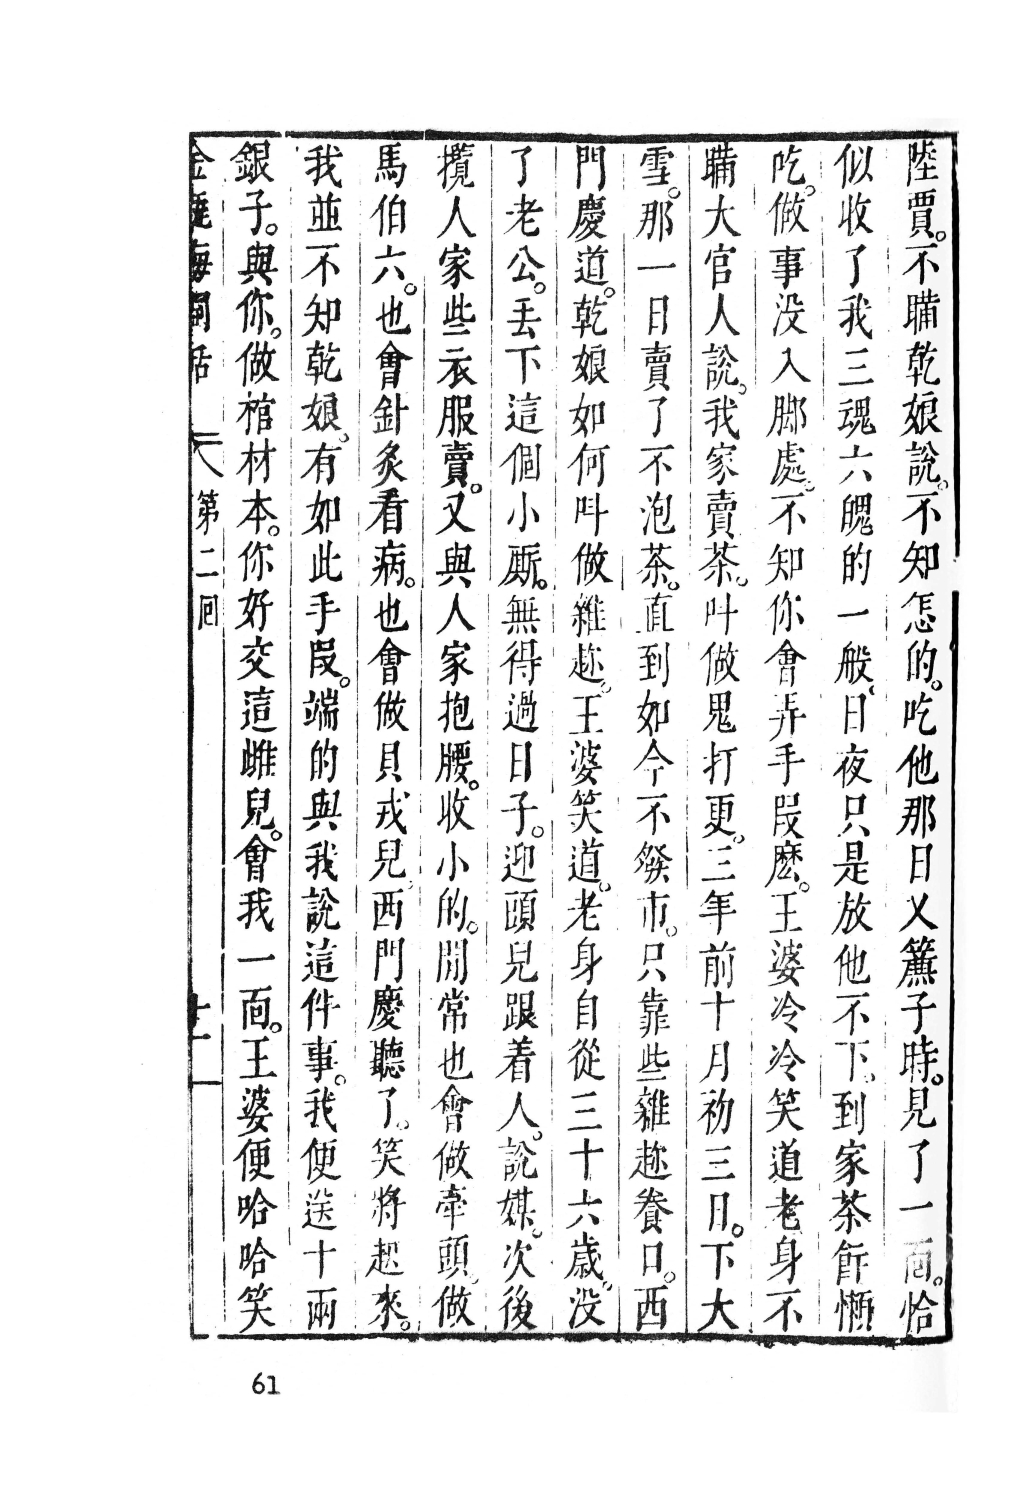 陸賈。不瞞乾娘說。不知怎的。吃他那日乂簾子時。見了一面。恰
似收了我三魂六魄的一般。日夜只是放他不下。到家茶飯懶
吃。做事沒入脚處。不知你會弄手段麽。王婆冷冷笑道老身不
瞞大官人說。我家賣茶。呌做鬼打更。三年前十月初三日。下大
雪。那一日賣了不泡茶。直到如今不發市。只靠些雜趂養口。西
門慶道。乾娘如何呌做雜趂。王婆笑道。老身自從三十六歲。没
了老公。丟下這個小厮。無得過日子。迎頭兒跟着人。說媒。次後
攬人家些衣服賣。又與人家抱腰。收小的。閒常也會做牽頭。做
馬伯六。也會針灸看病。也會做貝戎兒。西門慶聽了。笑將起來。
我並不知乾娘。有如此手段。端的與我說這件事。我便送十兩
銀子。與你。做棺材本。你好交這雌兒。會我一面。王婆便哈哈笑
金瓶梅詞話 第二回 十一
61